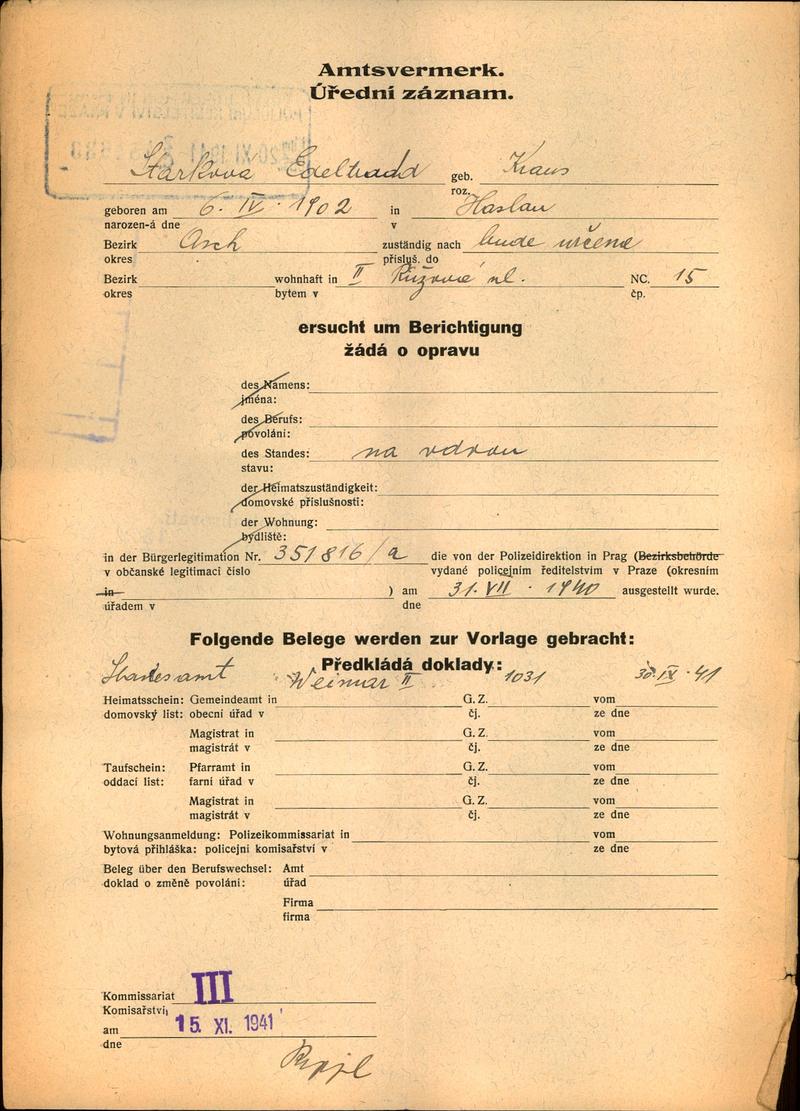 Amtsvermerk.
Úřední záznam.
20 XI 1941
Starková Edeltradd geb. Kraus
roz.
geboren am 6. IV. 1902 in Haslau
narozen-á dne v
Bezirk Asch zuständig nach bude určena
okres přísluš. do
Bezirk wohnhaft in II Růžová ul. NC. 15
okres bytem v čp.
ersucht um Berichtigung
žádá o opravu
des Namens:
jména:
des Berufs:
povolání:
des Standes: na vdovu
stavu:
der Heimatszuständigkeit:
domovské příslušnosti:
der Wohnung:
bydliště:
in der Bürgerlegitimation Nr. 351816/a die von der Polizeidirektion in Prag (Bezirksbehörde
v občanské legitimaci číslo vydané policejním ředitelstvím v Praze (okresním
in ) am 31. VII. 1940 ausgestellt wurde.
úřadem v dne
Folgende Belege werden zur Vorlage gebracht:
Předkládá doklady:
Standesamt Weimar II 1031 30. IX. 41
Heimatsschein: Gemeindeamt in G. Z. vom
domovský list: obecní úřad v čj. ze dne
Magistrat in G. Z. vom
magistrát v čj. ze dne
Taufschein: Pfarramt in G. Z. vom
oddací list: farní úřad v čj. ze dne
Magistrat in G. Z. vom
magistrát v čj. ze dne
Wohnungsanmeldung: Polizeikommissariat in vom
bytová přihláška: policejní komisařství v ze dne
Beleg über den Berufswechsel: Amt
doklad o změně povolání: úřad
Firma
firma
Kommissariat III
Komisařství
am 15. XI. 1941
dne